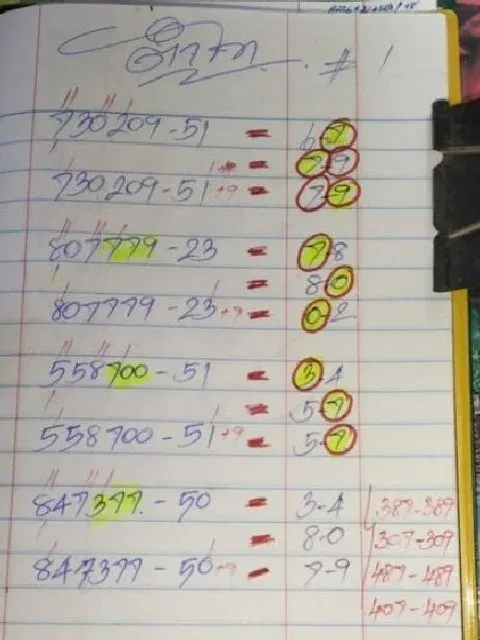 # 1
730209-51 = 6-7
= 7-9
730209-51+9 = 7-9
807779-23 = 7-8
= 8-0
807779-23+9 = 0-2
558700-51 = 3-4
= 5-7
558700-51+9 = 5-7
847377-50 = 3-4 387-389
= 8-0 307-309
847377-50+9 = 7-9 487-489
407-409